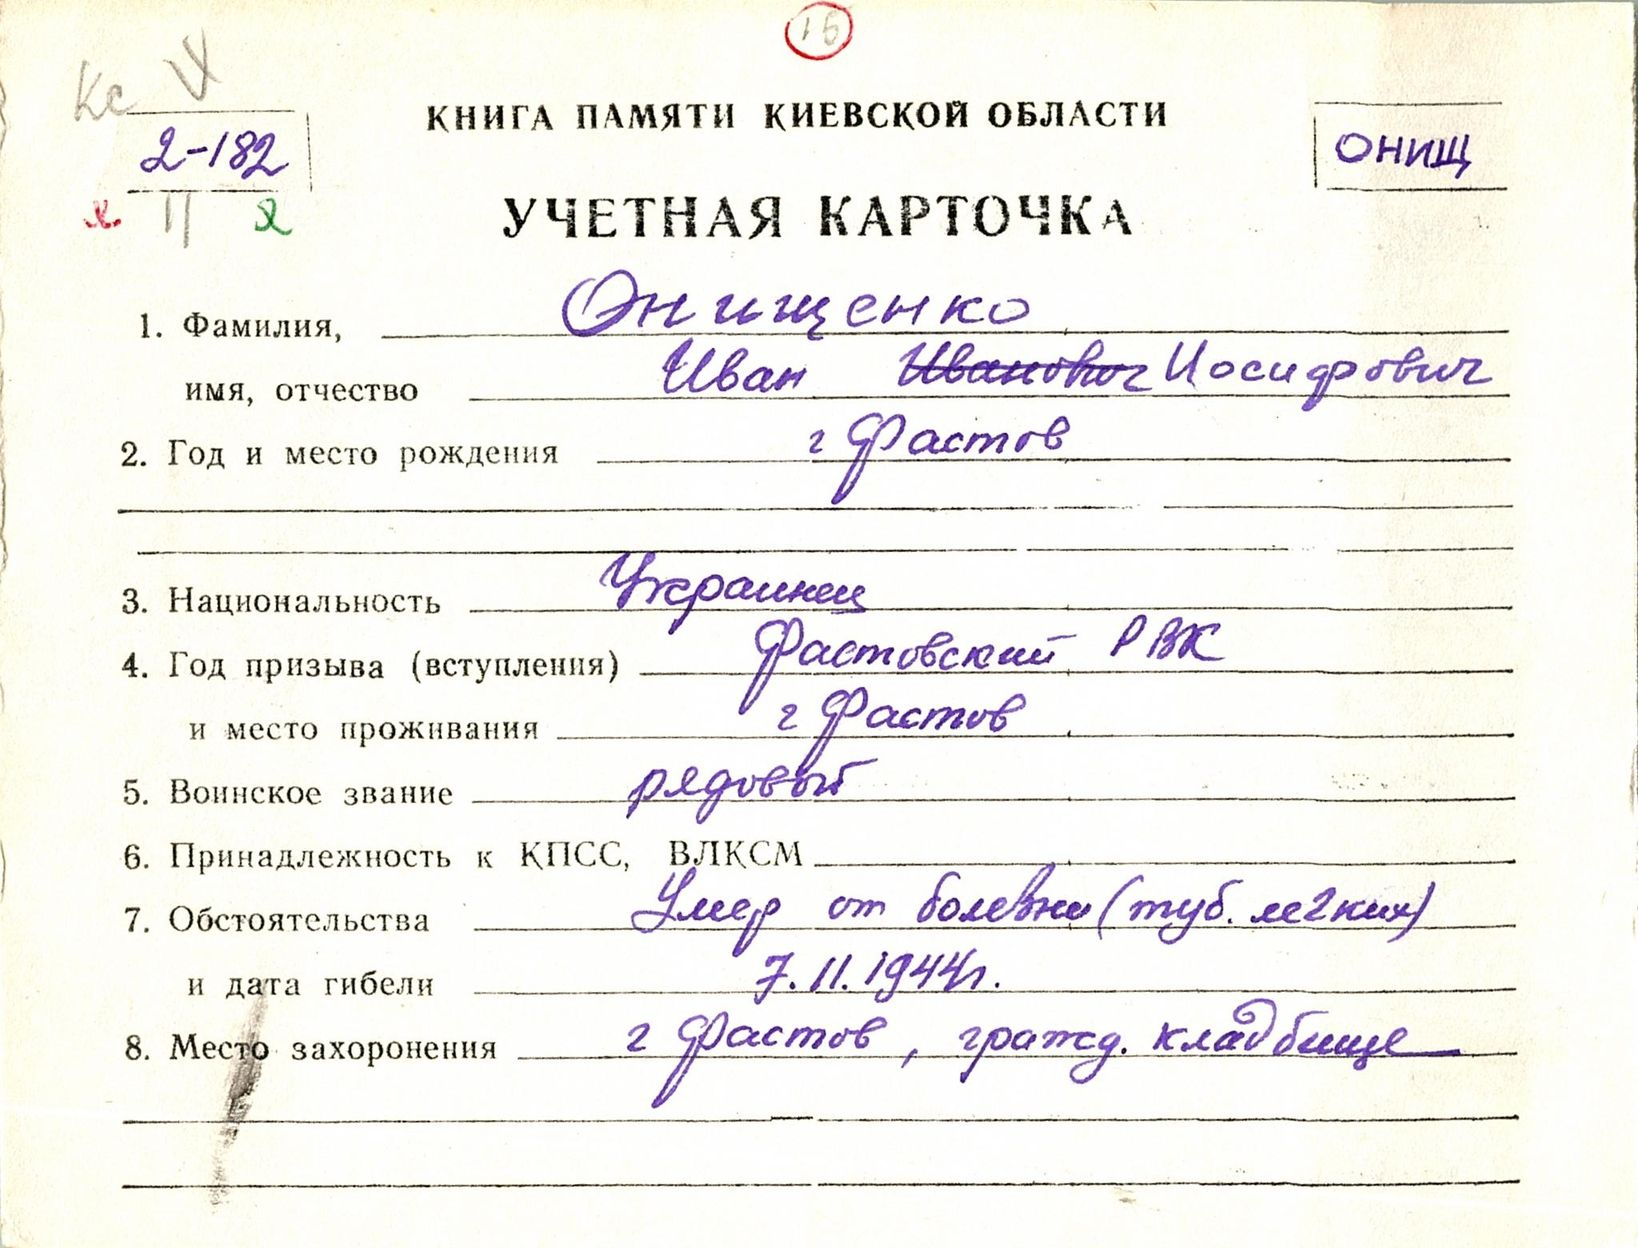 16
Кс V
КНИГА ПАМЯТИ КИЕВСКОЙ ОБЛАСТИ
2-182
ОНИЩ
УЧЕТНАЯ КАРТОЧКА
1. Фамилия, Онищенко
имя, отчество Иван Иванович Иосифович
2. Год и место рождения г Фастов
3. Национальность Украинец
4. Год призыва (вступления) Фастовский РВК
и место проживания г Фастов
5. Воинское звание рядовый
6. Принадлежность к КПСС, ВЛКСМ
7. Обстоятельства Умер от болезни (туб. легких)
и дата гибели 7.11.1944г.
8. Место захоронения г Фастов, гражд. кладбище